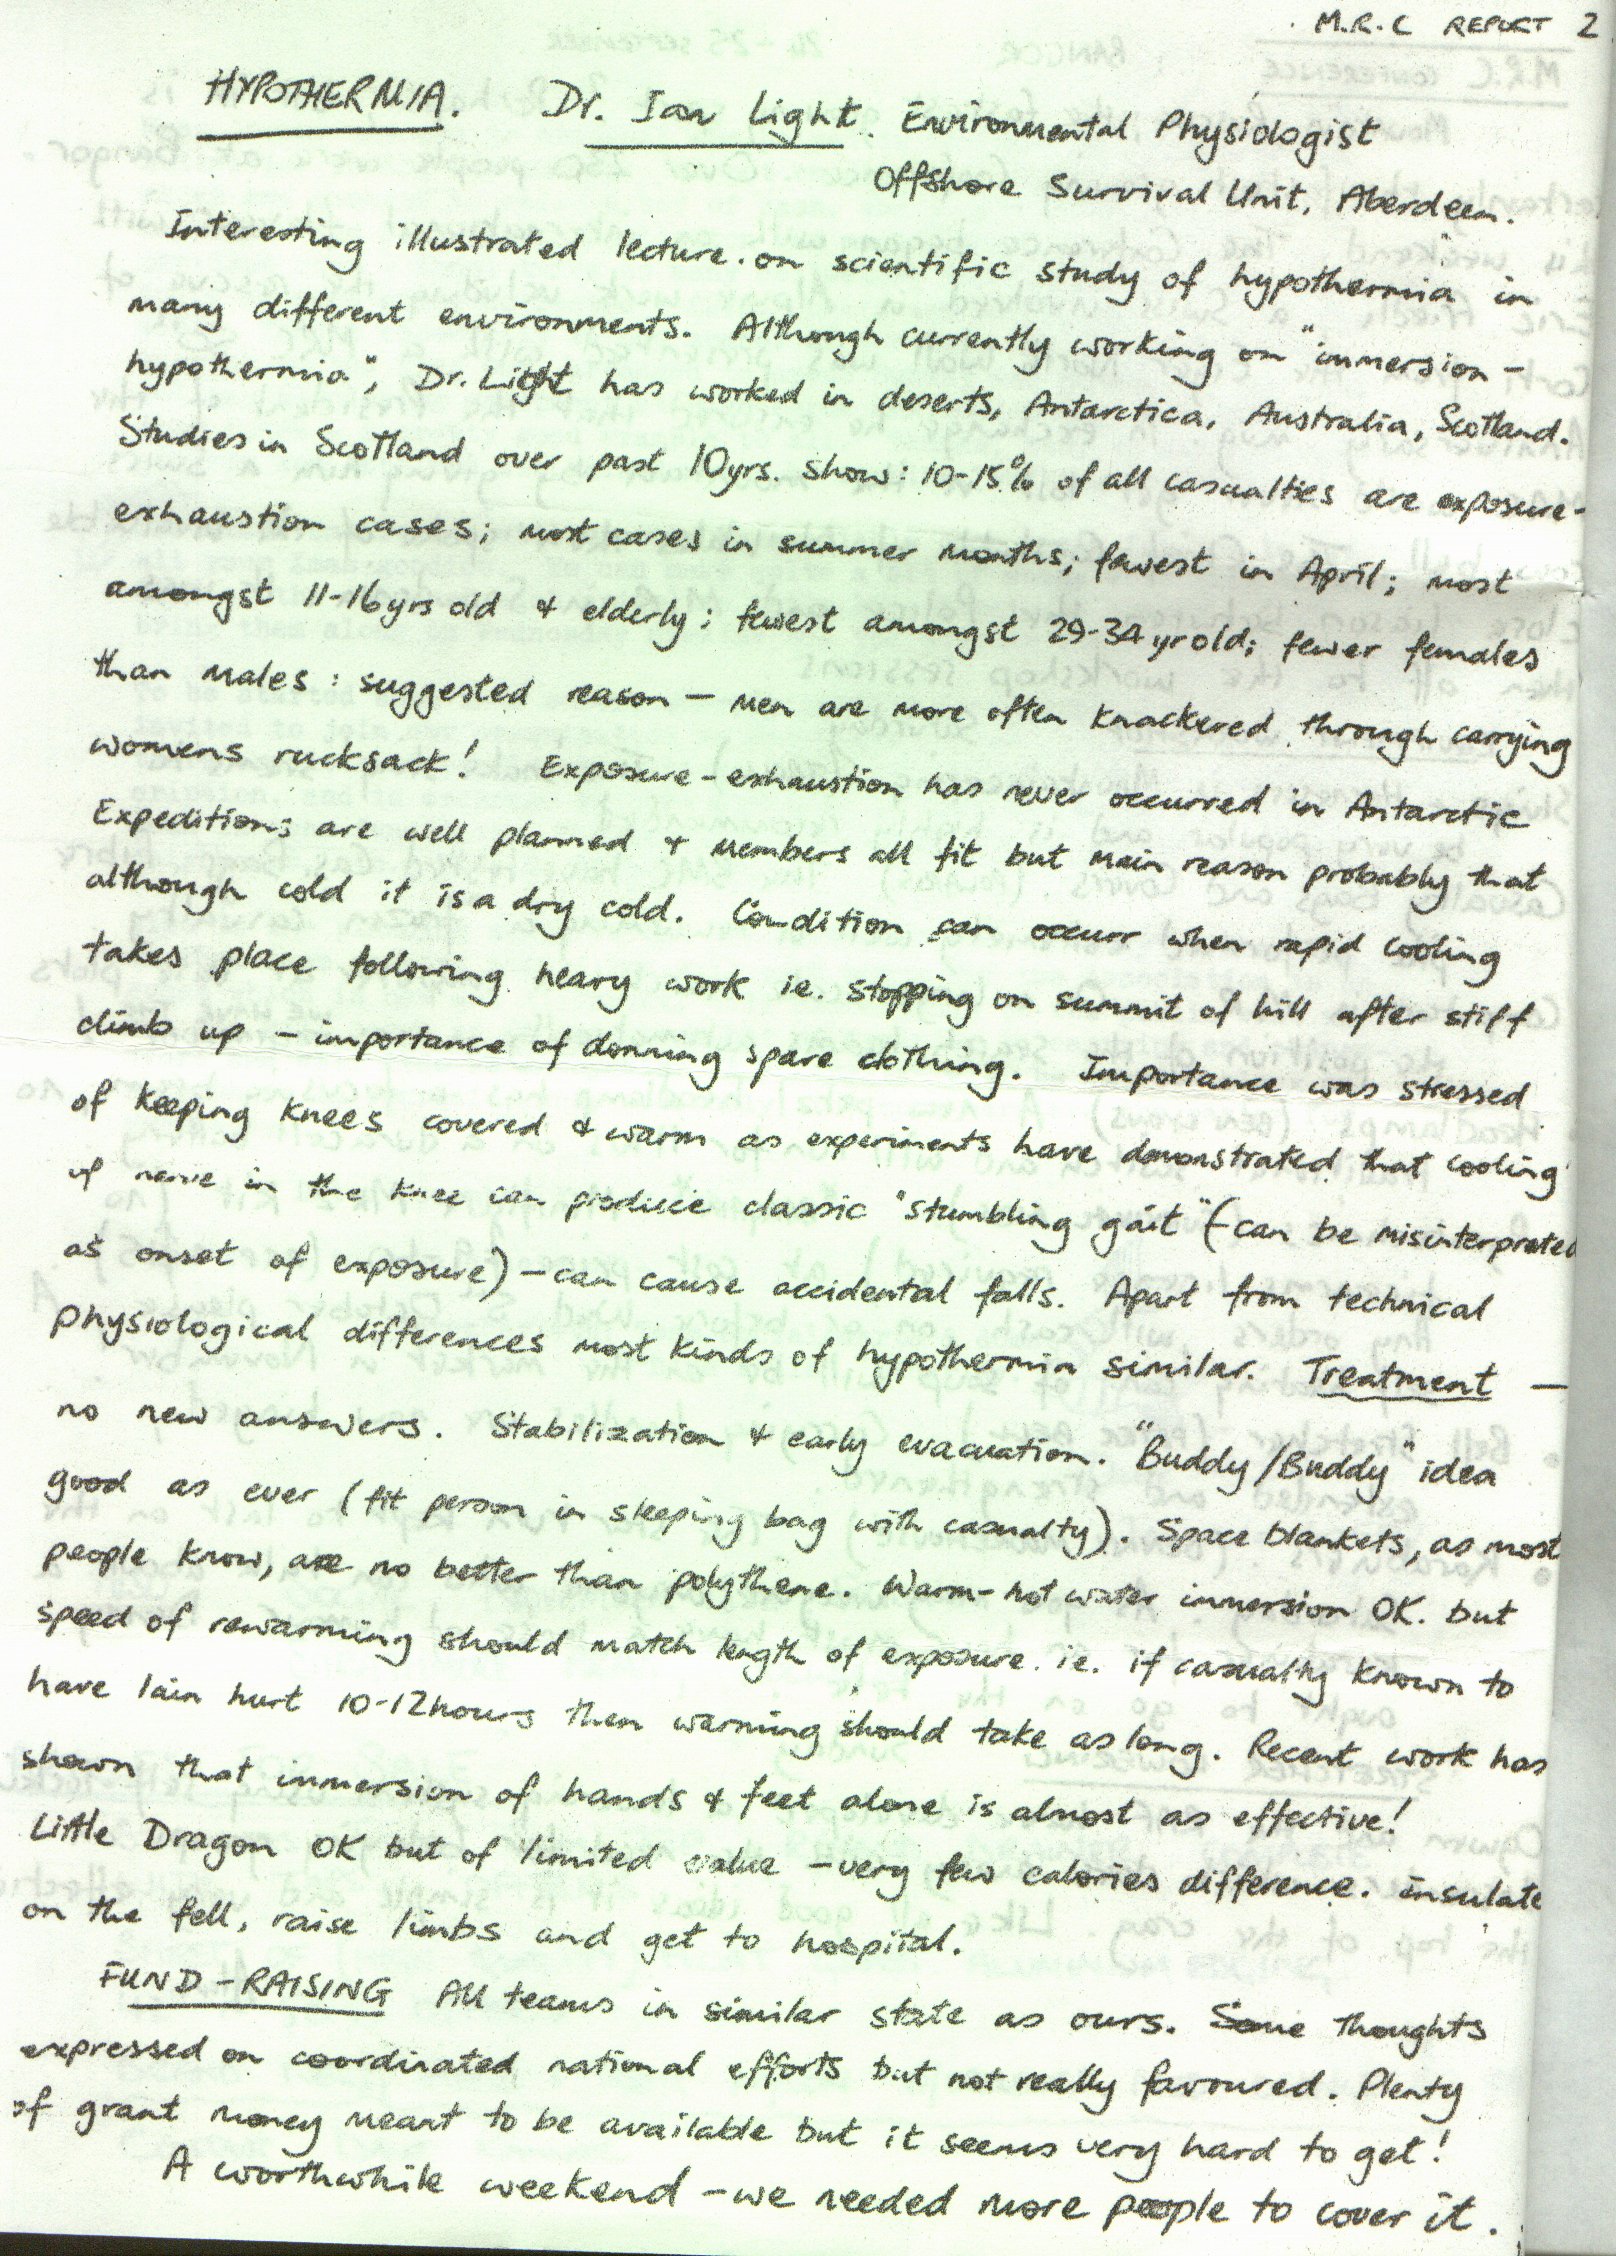 M.R.C REPORT 2
HYPOTHERMIA. Dr. Ian Light. Environmental Physiologist
Offshore Survival Unit, Aberdeen.
Interesting illustrated lecture on scientific study of hypothermia in
many different environments. Although currently working on "immersion-
hypothermia", Dr. Light has worked in deserts, Antarctica, Australia, Scotland.
Studies in Scotland over past 10yrs. show: 10-15% of all casualties are exposure-
exhaustion cases; most cases in summer months; fewest in April; most
amongst 11-16yrs old & elderly; fewest amongst 29-34yr old; fewer females
than males: suggested reason - men are more often knackered through carrying
womens rucksack! Exposure-exhaustion has never occurred in Antarctic
Expeditions are well planned & members all fit but main reason probably that
although cold it is a dry cold. Condition can occurr when rapid cooling
takes place following heavy work ie. stopping on summit of hill after stiff
climb up - importance of donning spare clothing. Importance was stressed
of keeping knees covered & warm as experiments have demonstrated that cooling
of nerve in the knee can produce classic "stumbling gait" (-can be misinterpreted
as onset of exposure) - can cause accidental falls. Apart from technical
physiological differences most kinds of hypothermia similar. Treatment -
no new answers. Stabilization & early evacuation. "Buddy/Buddy" idea
good as ever (fit person in sleeping bag with casualty). Space blankets, as most
people know, are no better than polythene. Warm-hot water immersion OK. but
speed of rewarming should match length of exposure. ie. if casualty known to
have lain hurt 10-12hours then warming should take as long. Recent work has
shown that immersion of hands & feet alone is almost as effective!
Little Dragon OK but of limited value - very few calories difference. insulate
on the fell, raise limbs and get to hospital.
FUND-RAISING All teams in similar state as ours. Some thoughts
expressed on coordinated national efforts but not really favoured. Plenty
of grant money meant to be available but it seems very hard to get!
A worthwhile weekend - we needed more people to cover it.